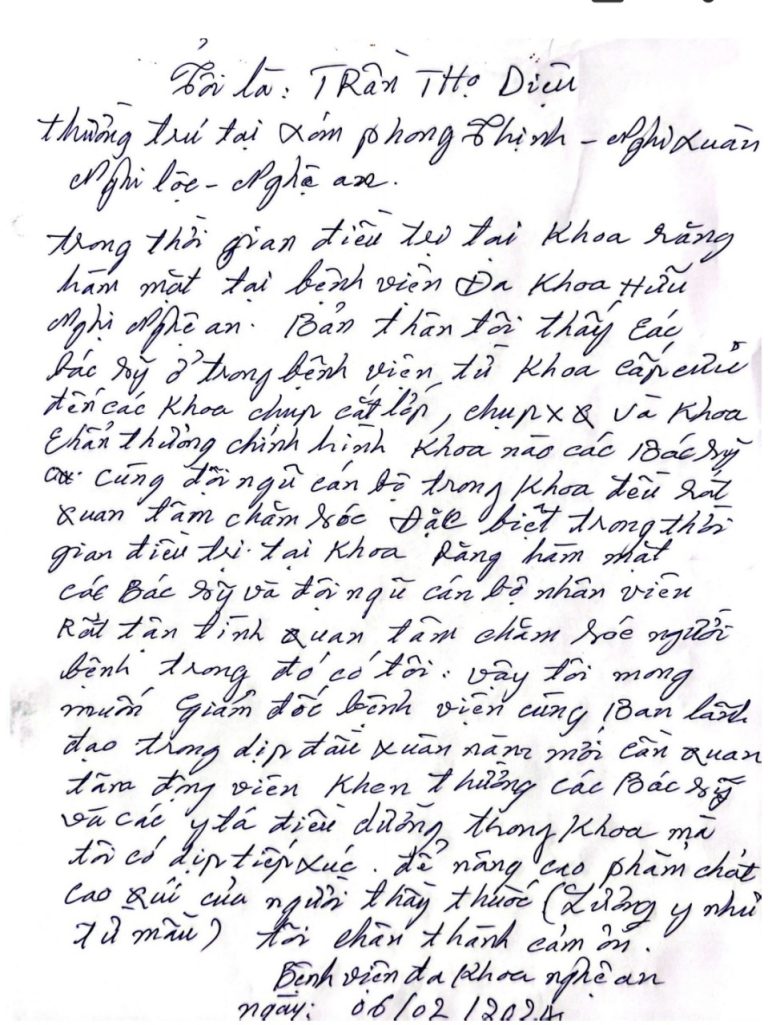 Tôi là: TRần THọ Diệu
thường trú tại xóm phong Thịnh - Nghi xuân
Nghi lộc - Nghệ an.
trong thời gian điều trị tại Khoa răng
hàm mặt tại bệnh viện Đa Khoa Hữu
Nghị Nghệ an. Bản thân tôi thấy các
bác sỹ ở trong bệnh viện từ Khoa cấp cứu
đến các Khoa chụp cắt lớp, chụp XQ và Khoa
chấn thương chỉnh hình Khoa nào các Bác sỹ
cùng đội ngũ cán bộ trong Khoa đều rất
quan tâm chăm sóc Đặc biệt trong thời
gian điều trị tại Khoa Răng hàm mặt
các Bác sỹ và đội ngũ cán bộ nhân viên
Rất tận tình quan tâm chăm sóc người
bệnh trong đó có tôi. vậy tôi mong
muốn Giám đốc bệnh viện cùng Ban lãnh
đạo trong dịp đầu xuân năm mới cần quan
tâm động viên Khen thưởng các Bác sỹ
và các y tá điều dưỡng trong Khoa mà
tôi có dịp tiếp xúc. để nâng cao phẩm chất
cao quí của người thầy thuốc (Lương y như
từ mẫu) tôi chân thành cảm ơn.
Bệnh viện đa Khoa nghệ an
ngày: 06/02/2024